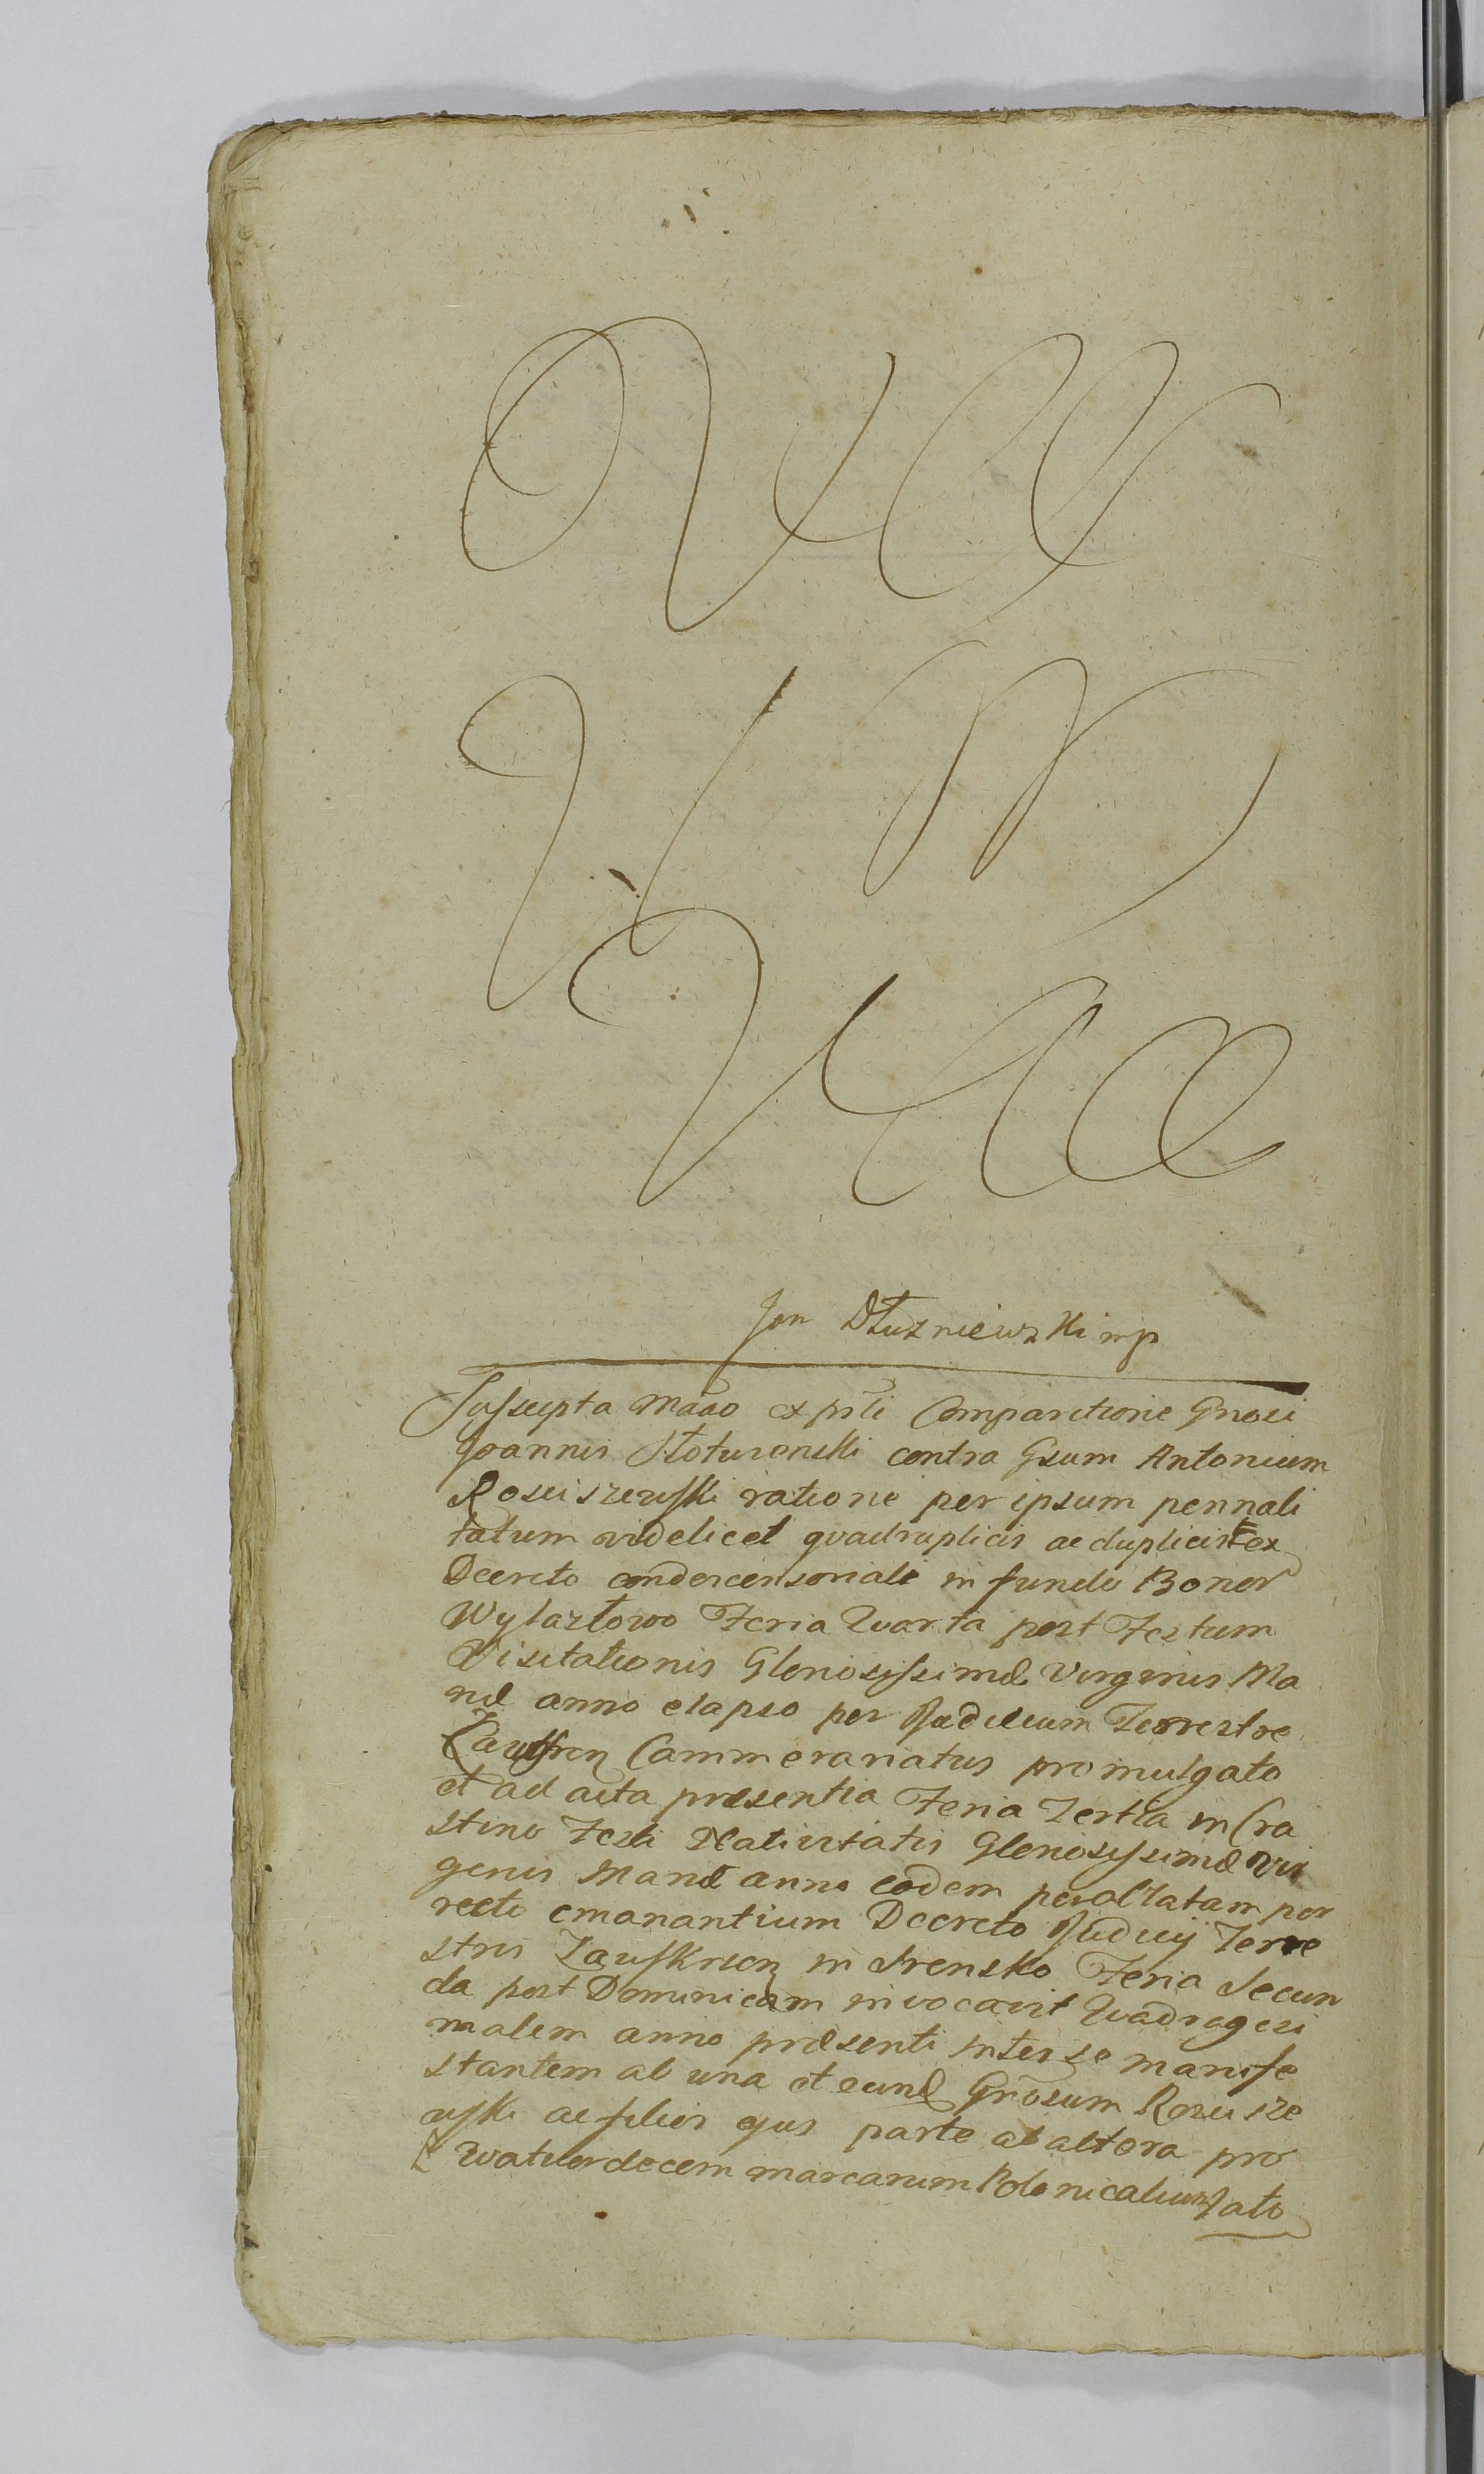 Jan Dłużniewski mp
Suscepta Mãao ex prti Comparitione Gnosi
Joannis Stoturenski contra Gsum Antonium
Rosciszewski ratione per ipsum pennali
tatum videlicet quadruplicis ac duplicis ex
Decreto condescensoriali in fundo Bonor
Wylazłowo Feria Quarta post Festum
Visitationis Gloriosissimæ Virginis Ma
riæ anno elapso per Judicium Terrestre
Zawskren Cammerariatus promulgato
et ad acta præsentia Feria Tertia in Cra
stino Festi Nativitatis Gloriosissimæ Vir
ginis Mariæ anno eodem per oblatam por
recto emanantium Decreto Judicij Terre
stris Zawskrzen in Srensko Feria Secun
da post Dominicam invocavit Quadragesi
malem anno præsenti inter se manife
stantem ab una et eund Grosum Roscisze
wski ac filios ejus parte ab altera pro
Quatuordecem marcarum Polonicalium lato